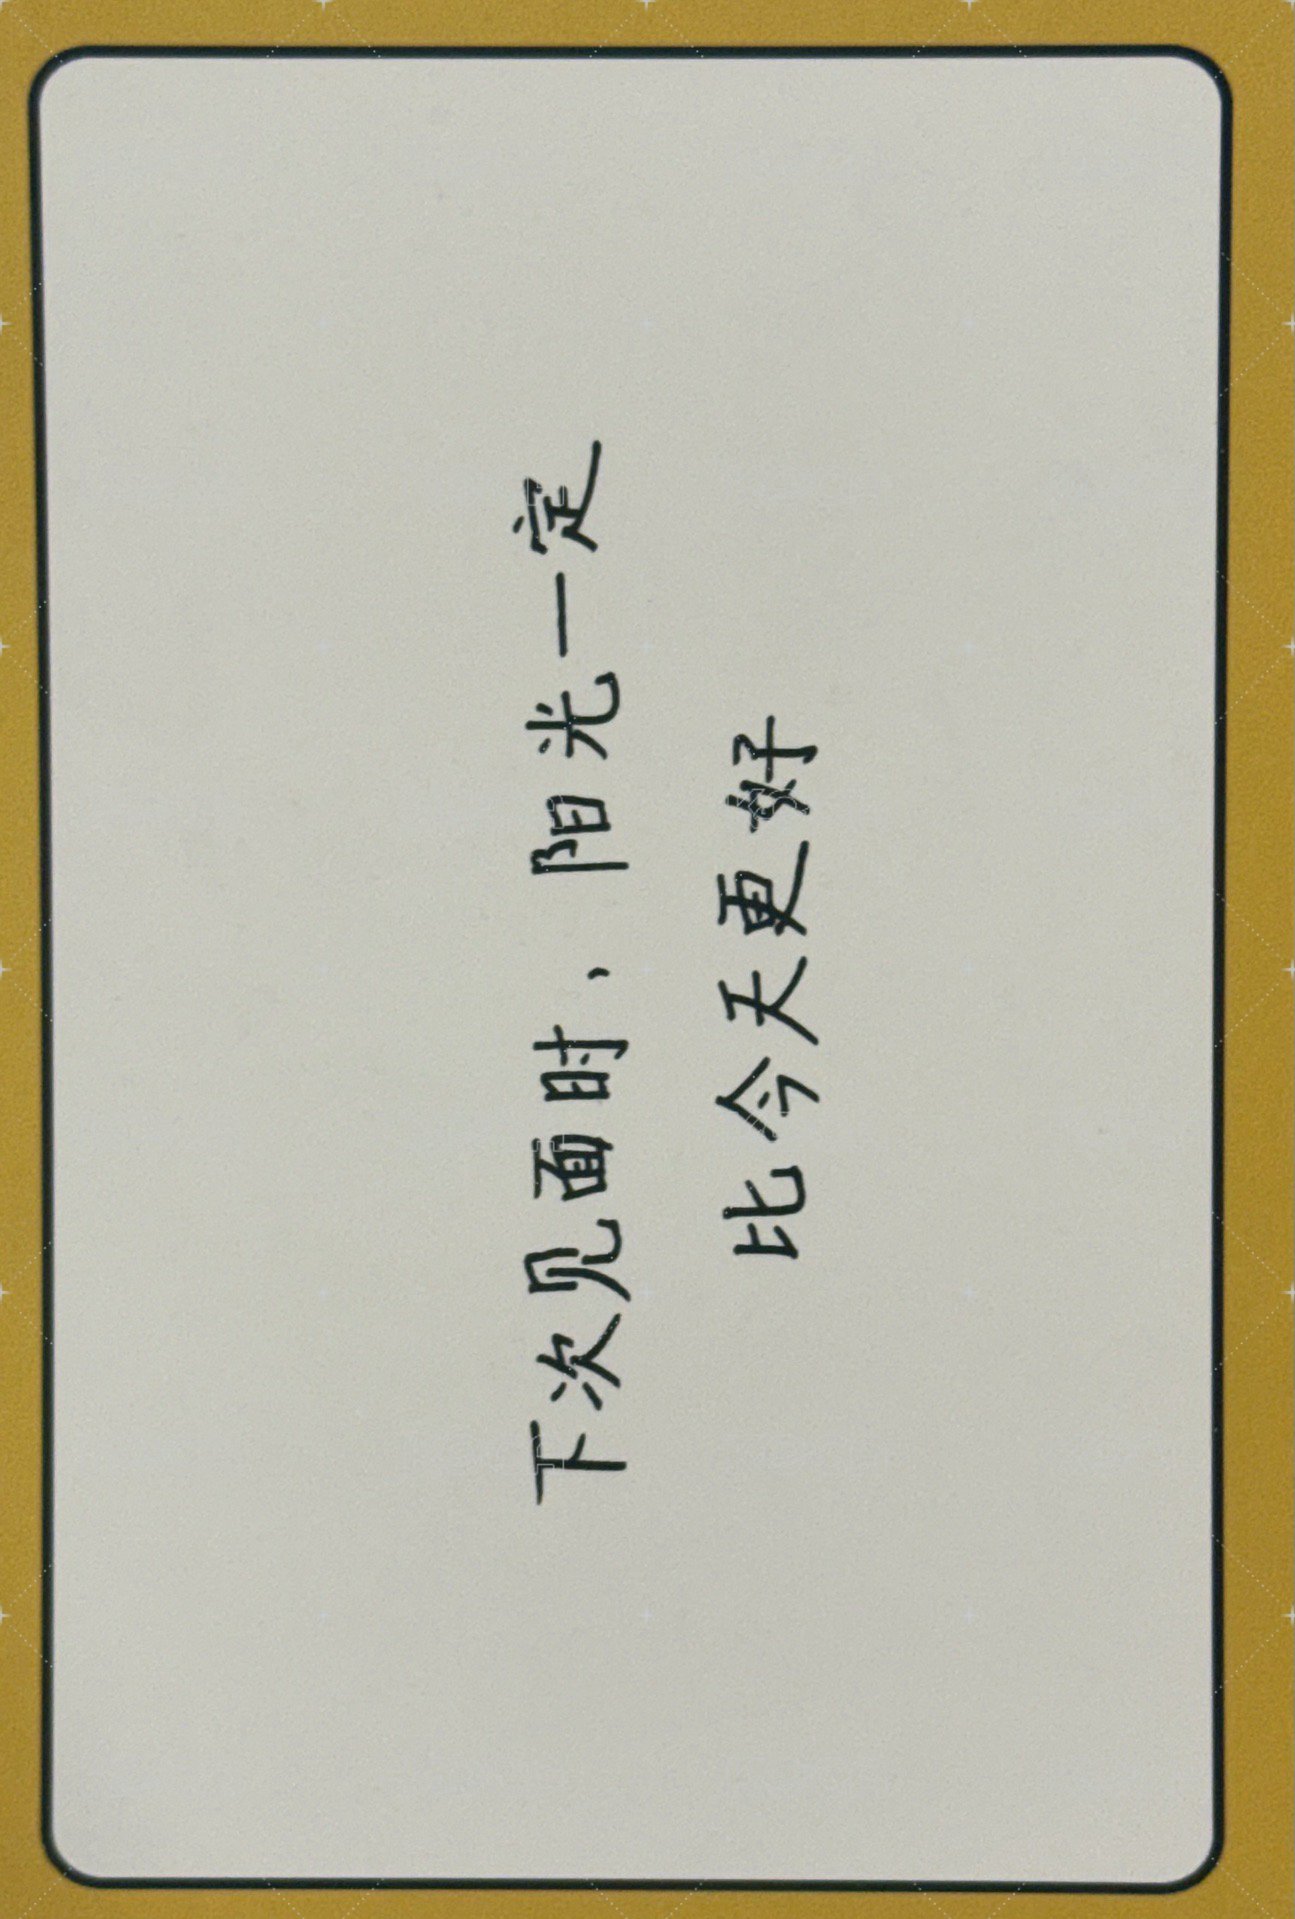 下次见面时、阳光一定
比今天更好